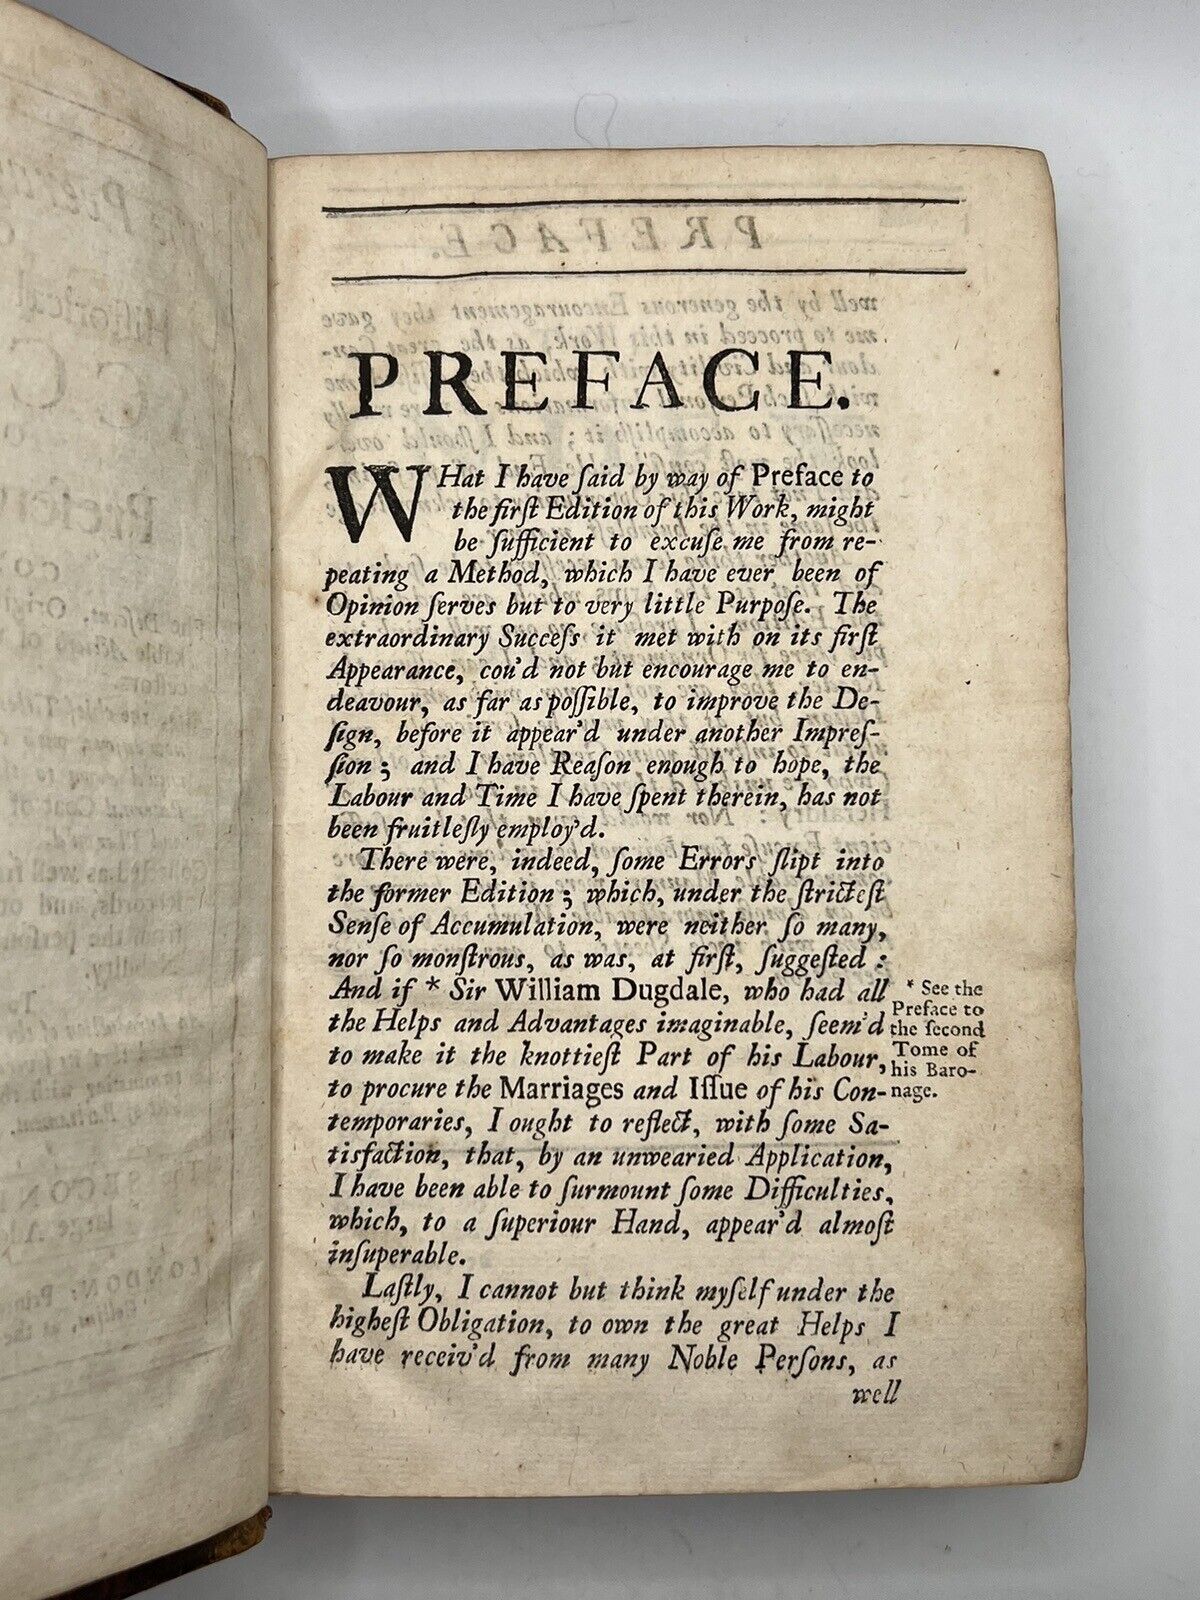 PREFACE.
WHat I have ſaid by way of Preface to
the firſt Edition of this Work, might
be ſufficient to excuſe me from re-
peating a Method, which I have ever been of
Opinion ſerves but to very little Purpoſe. The
extraordinary Succeſs it met with on its firſt
Appearance, cou'd not but encourage me to en-
deavour, as far as poſſible, to improve the De-
ſign, before it appear'd under another Impreſ-
ſion; and I have Reaſon enough to hope, the
Labour and Time I have ſpent therein, has not
been fruitleſly employ'd.
There were, indeed, ſome Errors ſlipt into
the former Edition; which, under the ſtricteſt
Senſe of Accumulation, were neither ſo many,
nor ſo monſtrous, as was, at firſt, ſuggeſted:
And if * Sir William Dugdale, who had all
the Helps and Advantages imaginable, ſeem'd
to make it the knottieſt Part of his Labour,
to procure the Marriages and Iſſue of his Con-
temporaries, I ought to reflect, with ſome Sa-
tisfaction, that, by an unwearied Application,
I have been able to ſurmount ſome Difficulties,
which, to a ſuperiour Hand, appear'd almoſt
inſuperable.
Laſtly, I cannot but think myſelf under the
higheſt Obligation, to own the great Helps I
have receiv'd from many Noble Perſons, as
well
* See the
Preface to
the ſecond
Tome of
his Baro-
nage.